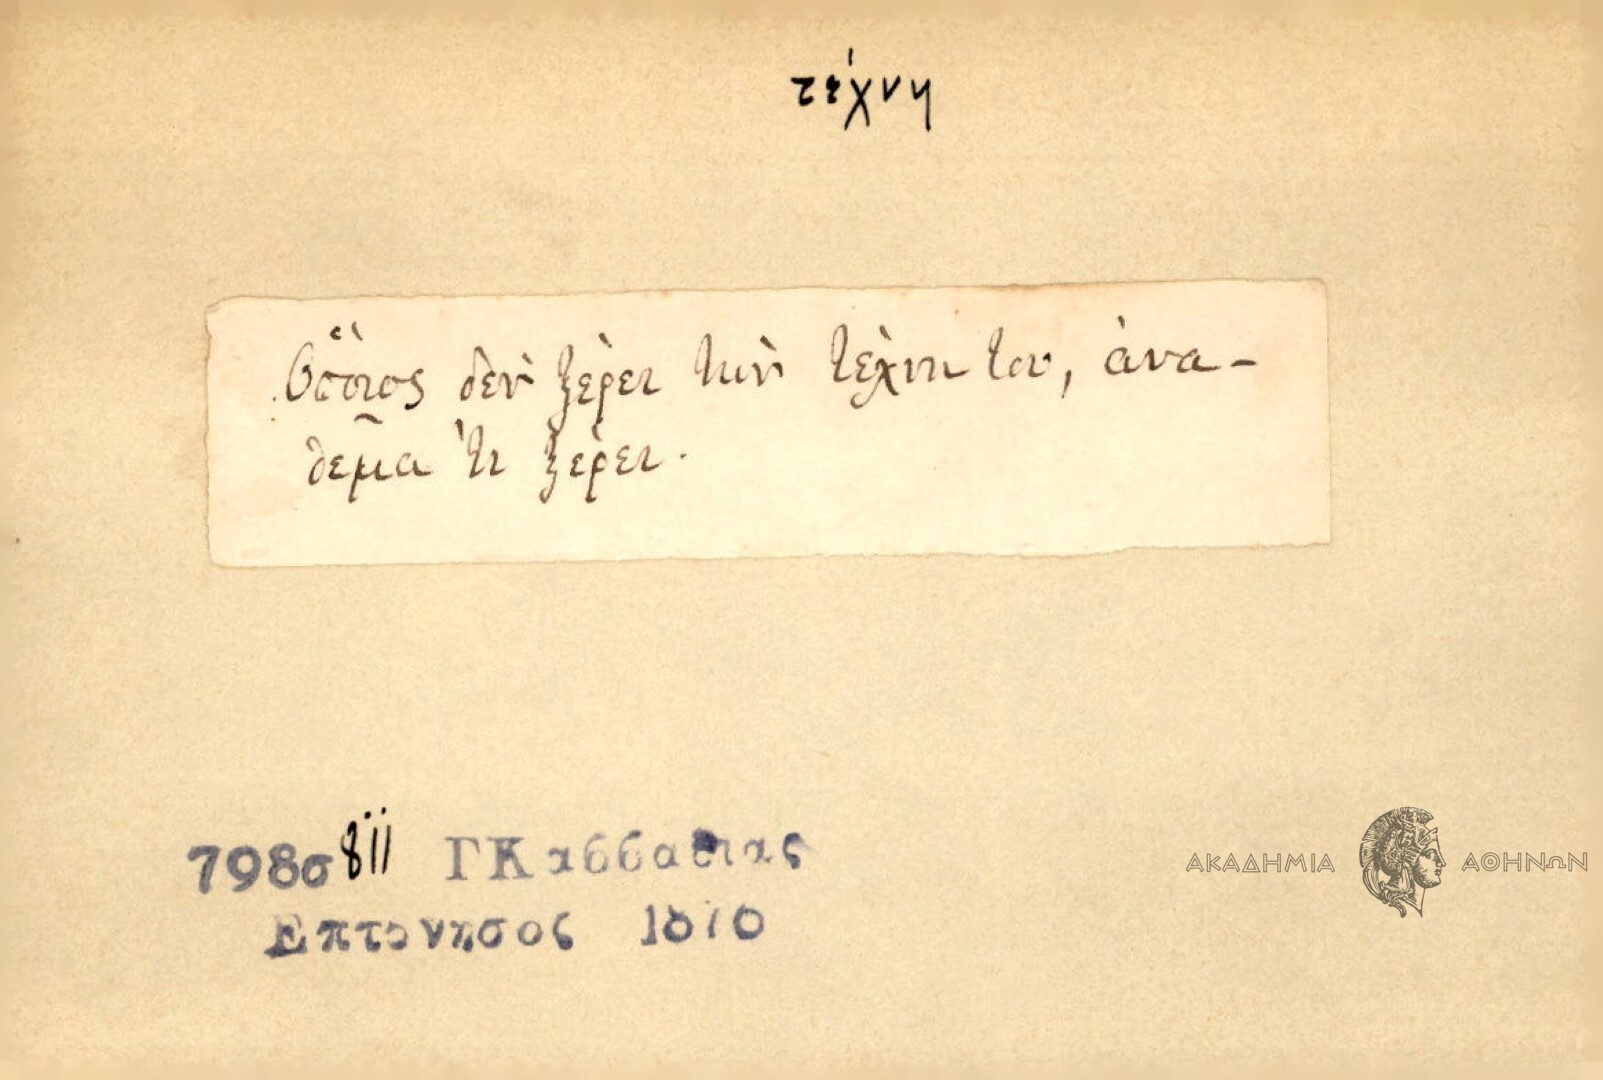 τέχνη
Ὅποιος δὲν ξέρει τὴν τέχνη του, ἀνα-
θεμα τι ξέρει.
798σ 8 ΓΚαββαδιας
Επτανησος 1876
ΑΚΑΔΗΜΙΑ ΑΘΗΝΩΝ